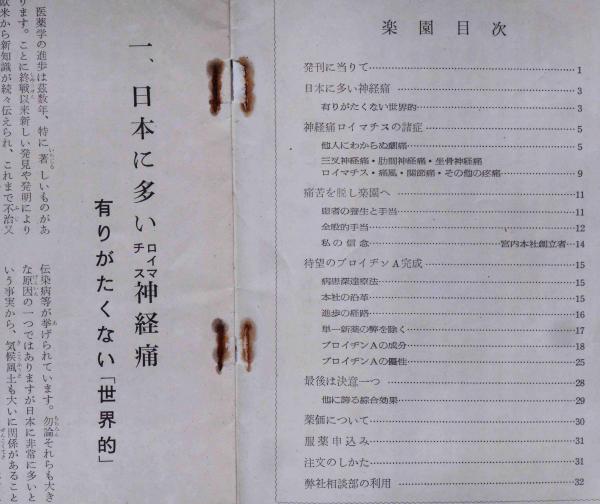 楽園目次
発刊に当りて 1
日本に多い神経痛 3
有りがたくない世界的 3
神経痛ロイマチスの諸症 5
他人にわからぬ劇痛 5
三叉神経痛・肋間神経痛・坐骨神経痛
ロイマチス・痛風・関節痛・その他の疼痛 9
痛苦を脱し楽園へ 11
患者の養生と手当 11
全般的手当 12
私の信念 宮内本社創立者 14
待望のブロイヂンA完成 15
病患深達療法 15
本社の沿革 15
進歩の経路 16
単一新薬の弊を除く 17
ブロイヂンAの成分 18
ブロイヂンAの優性 25
最後は決意一つ 28
他に誇る綜合効果 29
薬価について 30
服薬申込み 31
注文のしかた 31
弊社相談部の利用 32
一、日本に多い神経痛
ロイマ
チス
有りがたくない「世界的」
医薬学の進歩は茲数年、特に著しいものがあ
ります。ことに終戦以来新しい発見や発明により
欧米から新知識が続々伝えられ、これまで不治又
伝染病等が挙げられています。勿論それらも大き
な原因の一つではありますが日本に非常に多いと
いう事実から、気候風土も大いに関係があること